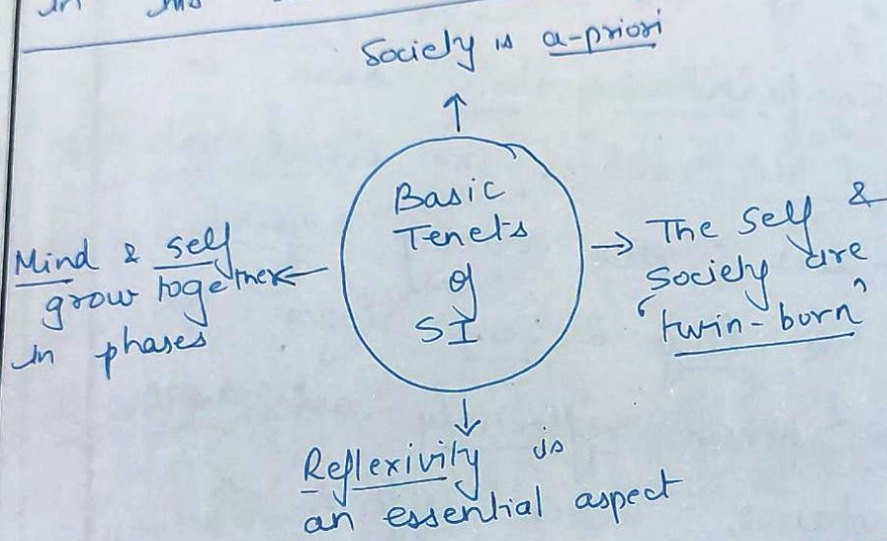 in
Society is a-priori
Basic
Tenets
of
SI
Mind & self
grow together
in phases
→ The self &
society are
'twin-born'
Reflexivity is
an essential aspect